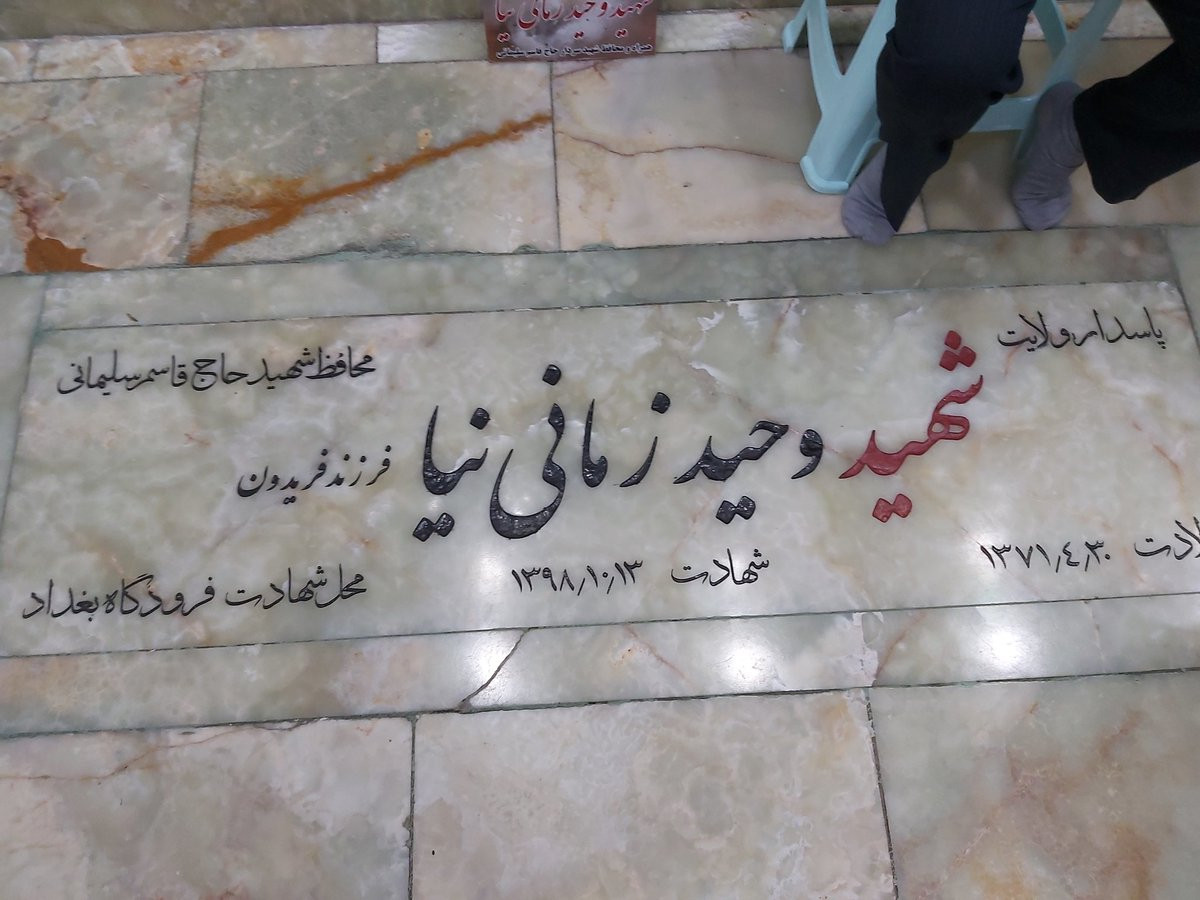 شهید وحید زمانی نیا
همراه و محافظ شهید سردار حاج قاسم سلیمانی
پاسدار ولایت
محافظ شهید حاج قاسم سلیمانی
شهید وحید زمانی نیا
فرزند فریدون
لادت ۱۳۷۱٫۴٫۳۰
شهادت ۱۳۹۸٫۱۰٫۱۳
محل شهادت فرودگاه بغداد